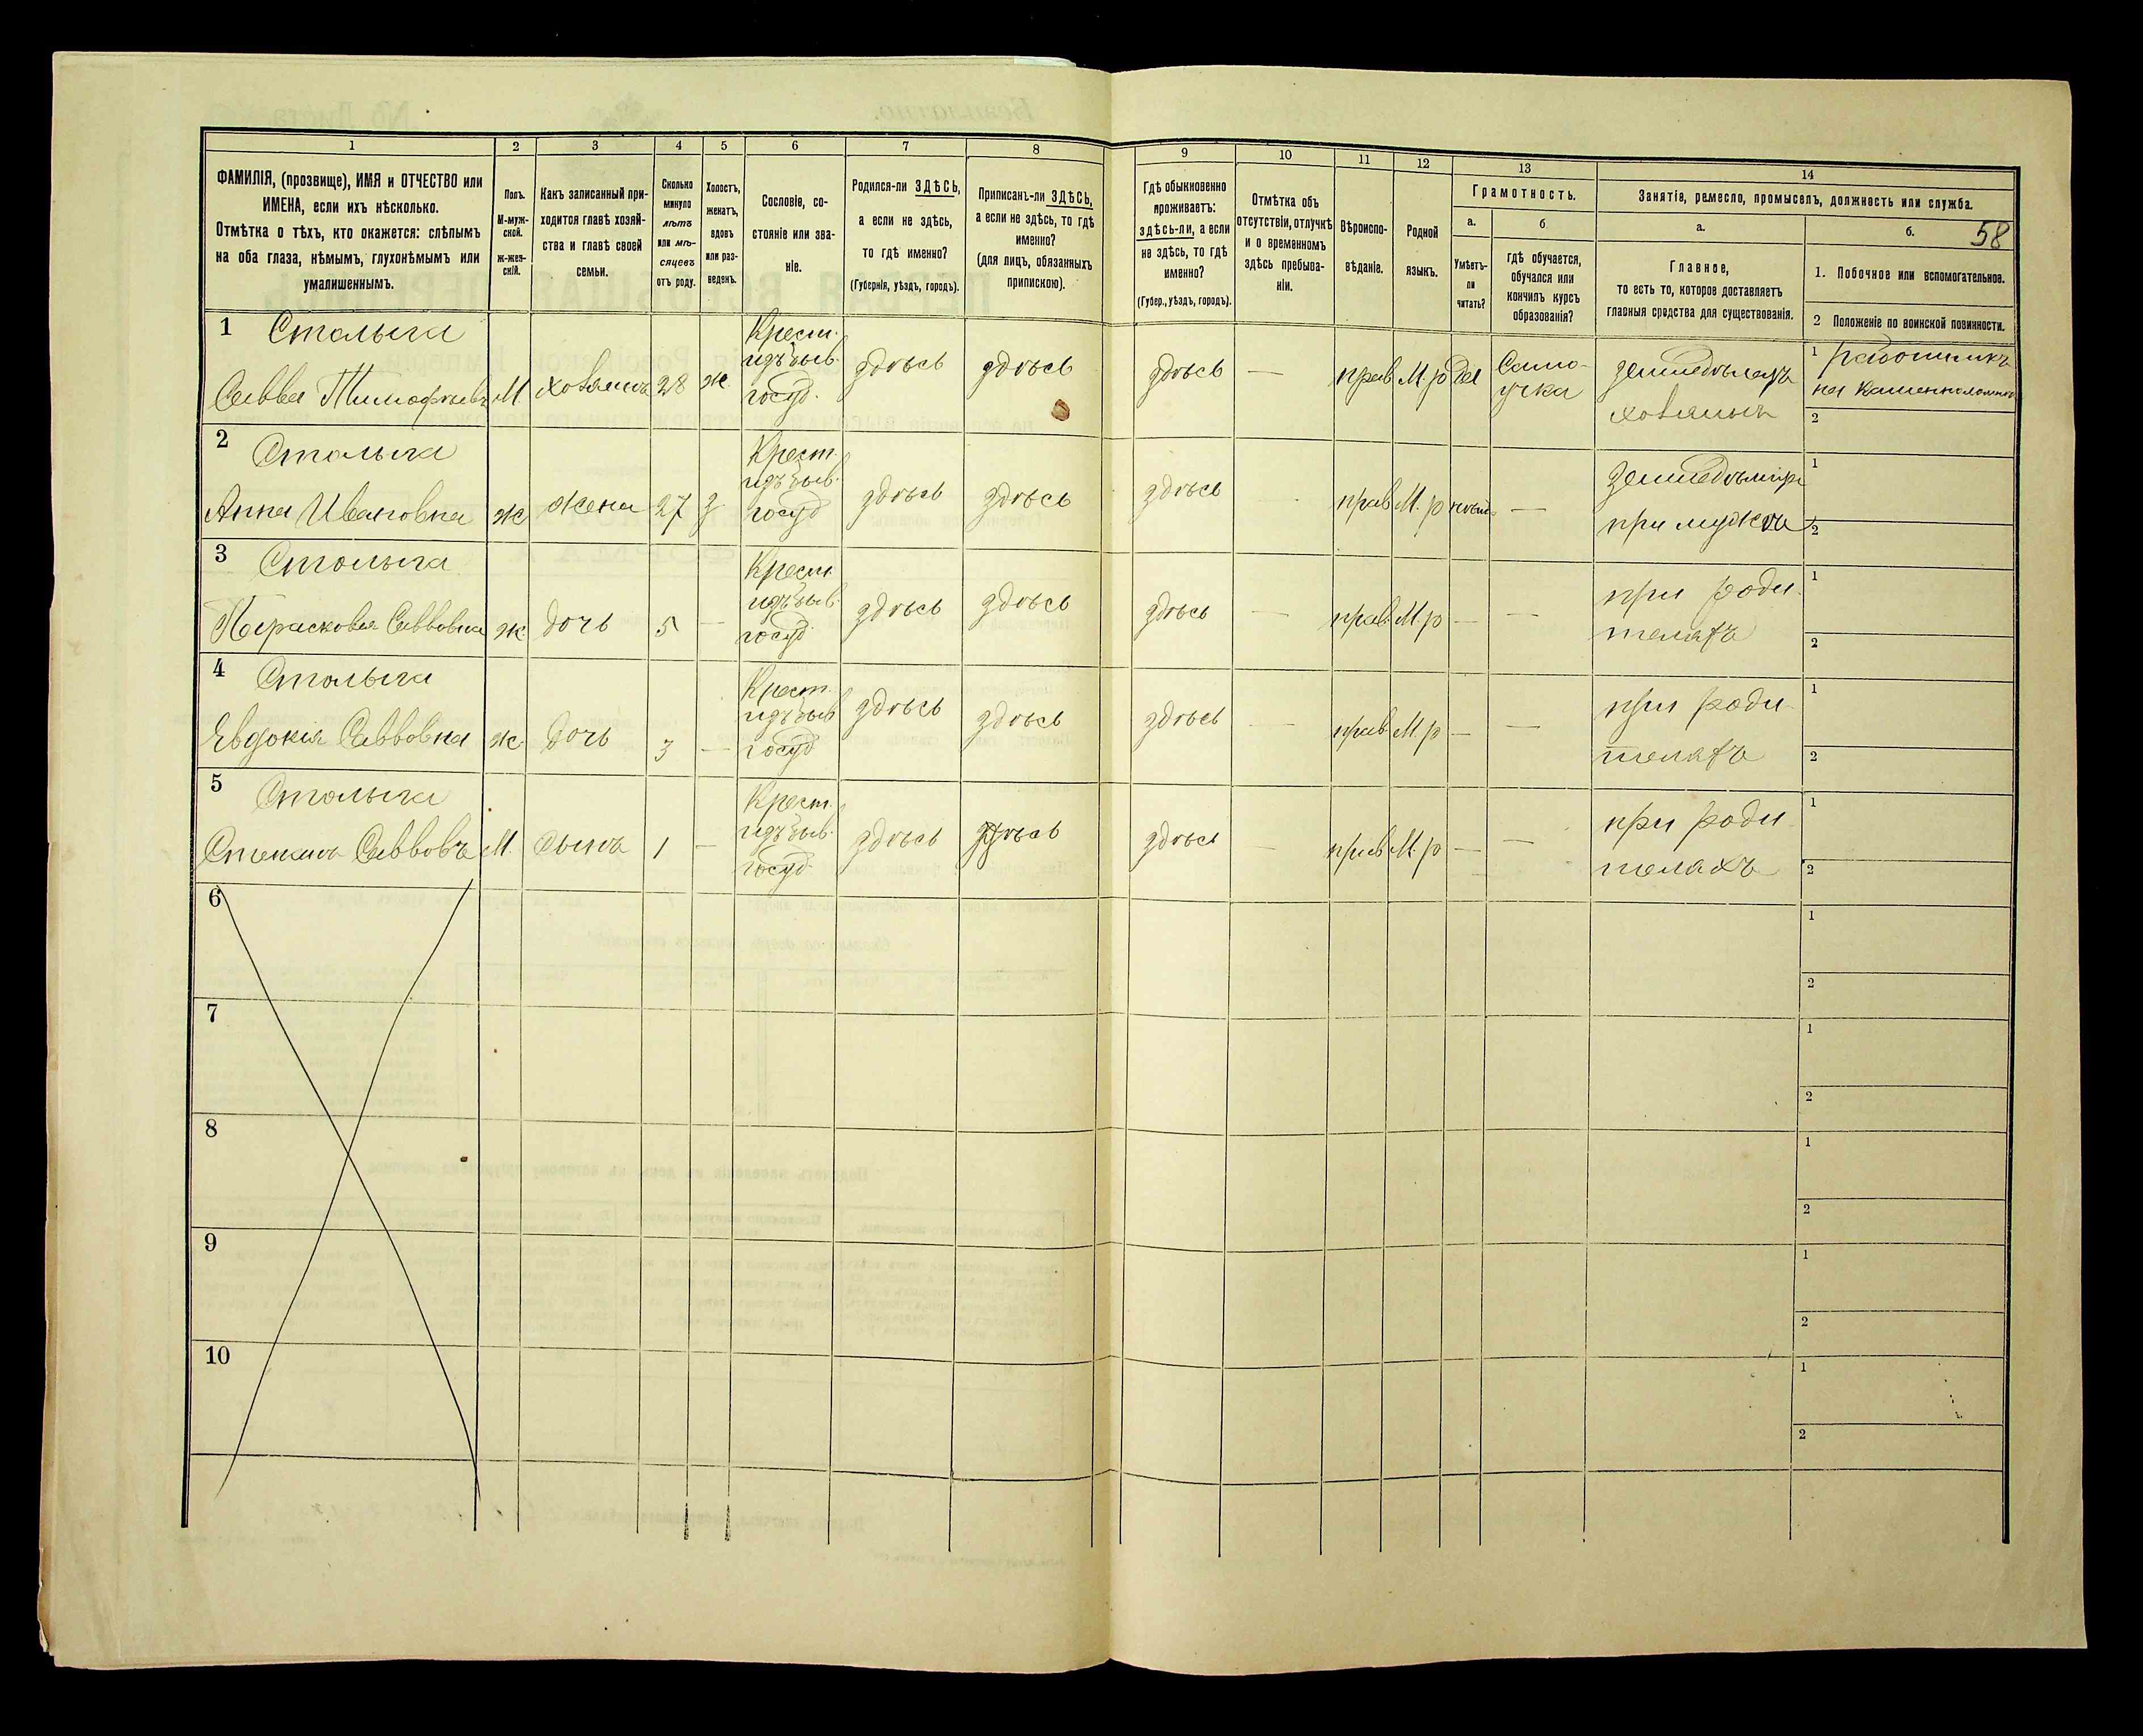 1 2 3 4 5 6 7 8 9 10 11 12 13 14
ФАМИЛІЯ, (прозвище), ИМЯ и ОТЧЕСТВО или
ИМЕНА, если ихъ нѣсколько.
Отмѣтка о тѣхъ, кто окажется: слѣпымъ
на оба глаза, нѣмымъ, глухонѣмымъ или
умалишеннымъ.
Полъ.
М-муж-
ской.
ж-жен-
скій.
Какъ записанный при-
ходится главѣ хозяй-
ства и главѣ своей
семьи.
Сколько
минуло
лѣтъ
или мѣ-
сяцевъ
отъ роду.
Холостъ,
женатъ,
вдовъ
или раз-
веденъ.
Сословіе, со-
стояніе или зва-
ніе.
Родился-ли ЗДѢСЬ,
а если не здѣсь,
то гдѣ именно?
(Губернія, уѣздъ, городъ).
Приписанъ-ли ЗДѢСЬ,
а если не здѣсь, то гдѣ
именно?
(для лицъ, обязанныхъ
припискою).
Гдѣ обыкновенно
проживаетъ:
здѣсь-ли, а если
не здѣсь, то гдѣ
именно?
(Губер., уѣздъ, городъ).
Отмѣтка объ
отсутствіи, отлучкѣ
и о временномъ
здѣсь пребыва-
ніи.
Вѣроиспо-
вѣданіе.
Родной
языкъ.
Грамотность.
а.
Умѣетъ-
ли
читать?
б
гдѣ обучается,
обучался или
кончилъ курсъ
образованія?
Занятія, ремесло, промыселъ, должность или служба.
а.
Главное,
то есть то, которое доставляетъ
главныя средства для существованія.
б. 58
1. Побочное или вспомогательное.
2 Положеніе по воинской повинности.
1 Столыга
Савва Тимофѣевъ М. хозяинъ 28 ж.
Крест.
изъ быв.
госуд.
здѣсь здѣсь здѣсь — прав М. р Да
Само-
учка
земледѣлецъ
хозяинъ
1 работникъ
на каменоломнѣ
2
2 Столыга
Анна Ивановна ж жена 27 з
Крест.
изъ быв.
госуд
здѣсь здѣсь здѣсь прав М. р нѣт —
при мужѣ
1
2
3 Столыга
Парасковья Саввовна ж дочь 5 —
Крест.
изъ быв.
госуд.
здѣсь здѣсь здѣсь — прав. М. р — —
при роди-
теляхъ
1
2
4 Столыга
Евдокія Саввовна ж. дочь 3 —
Крест.
изъ быв
госуд
здѣсь здѣсь здѣсь — прав М. р — —
при роди-
теляхъ
1
2
5 Столыга
Степанъ Саввовъ М. сынъ 1 —
Крест.
изъ быв.
госуд.
здѣсь здѣсь здѣсь — прав М. р — —
при роди-
телахъ
1
2
6
1
2
7
1
2
8
1
2
9
1
2
10
1
2